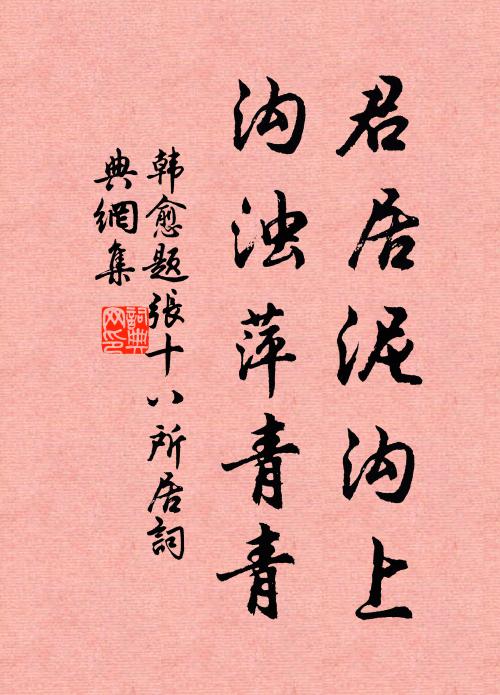 君居泥沟上
沟浊萍青青
韩愈题張十八所居詞
典網集
詞典
网印